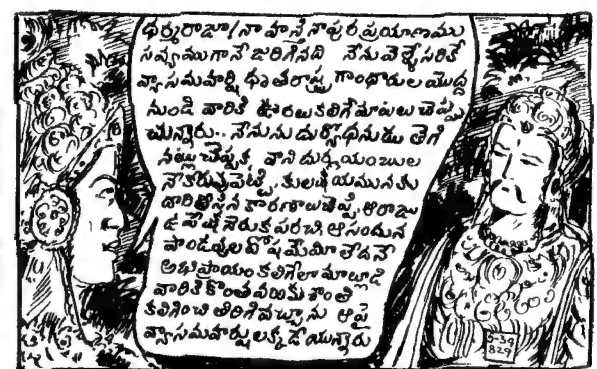 ధర్మరాజా! నా హస్తినాపుర ప్రయాణము
సవ్యముగానే జరిగినది నేను వెళ్ళేసరికే
వ్యాసమహర్షి ధృతరాష్ట్ర గాంధారుల యొద్ద
నుండి వారికి ఊరటకలిగే మాటలు చెప్పు
చున్నారు.. నేనును దుర్యోధనుడు తెగి
నట్లు చెప్పక, వాని దుర్నయంబుల
నేకరువుపెట్టి, కులక్షయమునకు
దారితీసిన కారణాలు చెప్పి, ఆ రాజు
ఉపేక్ష నెరుక పరచి, అందున
పాండవుల దోషమేమీ లేదనే
అభిప్రాయం కలిగేలా మాట్లాడి
వారికి కొంతవరకు శాంతి
కలిగించి తిరిగివచ్చాను ఆపై
వ్యాసమహర్షులక్కడే యున్నారు
5-39
829